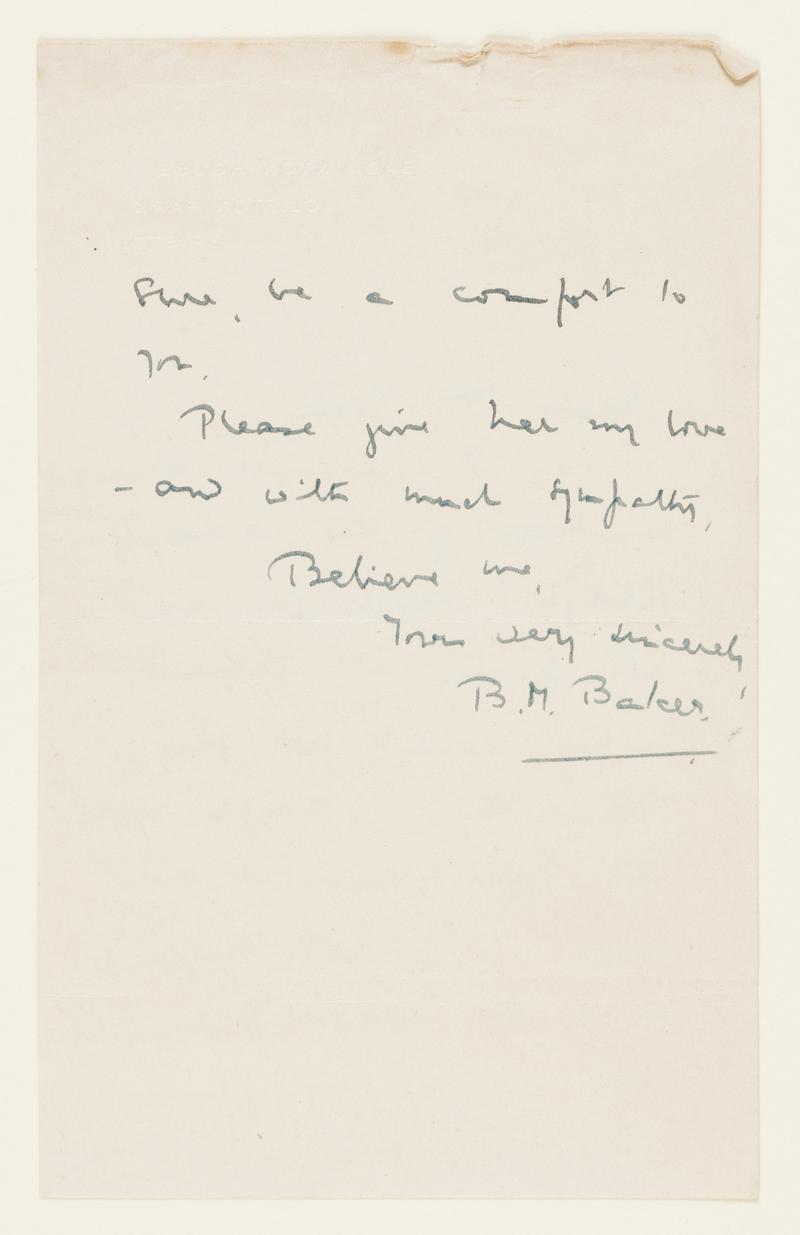 sure, be a comfort to
you.
Please give her my love
- and with much sympathy,
Believe me,
Yours very sincerely,
B.M. Baker.